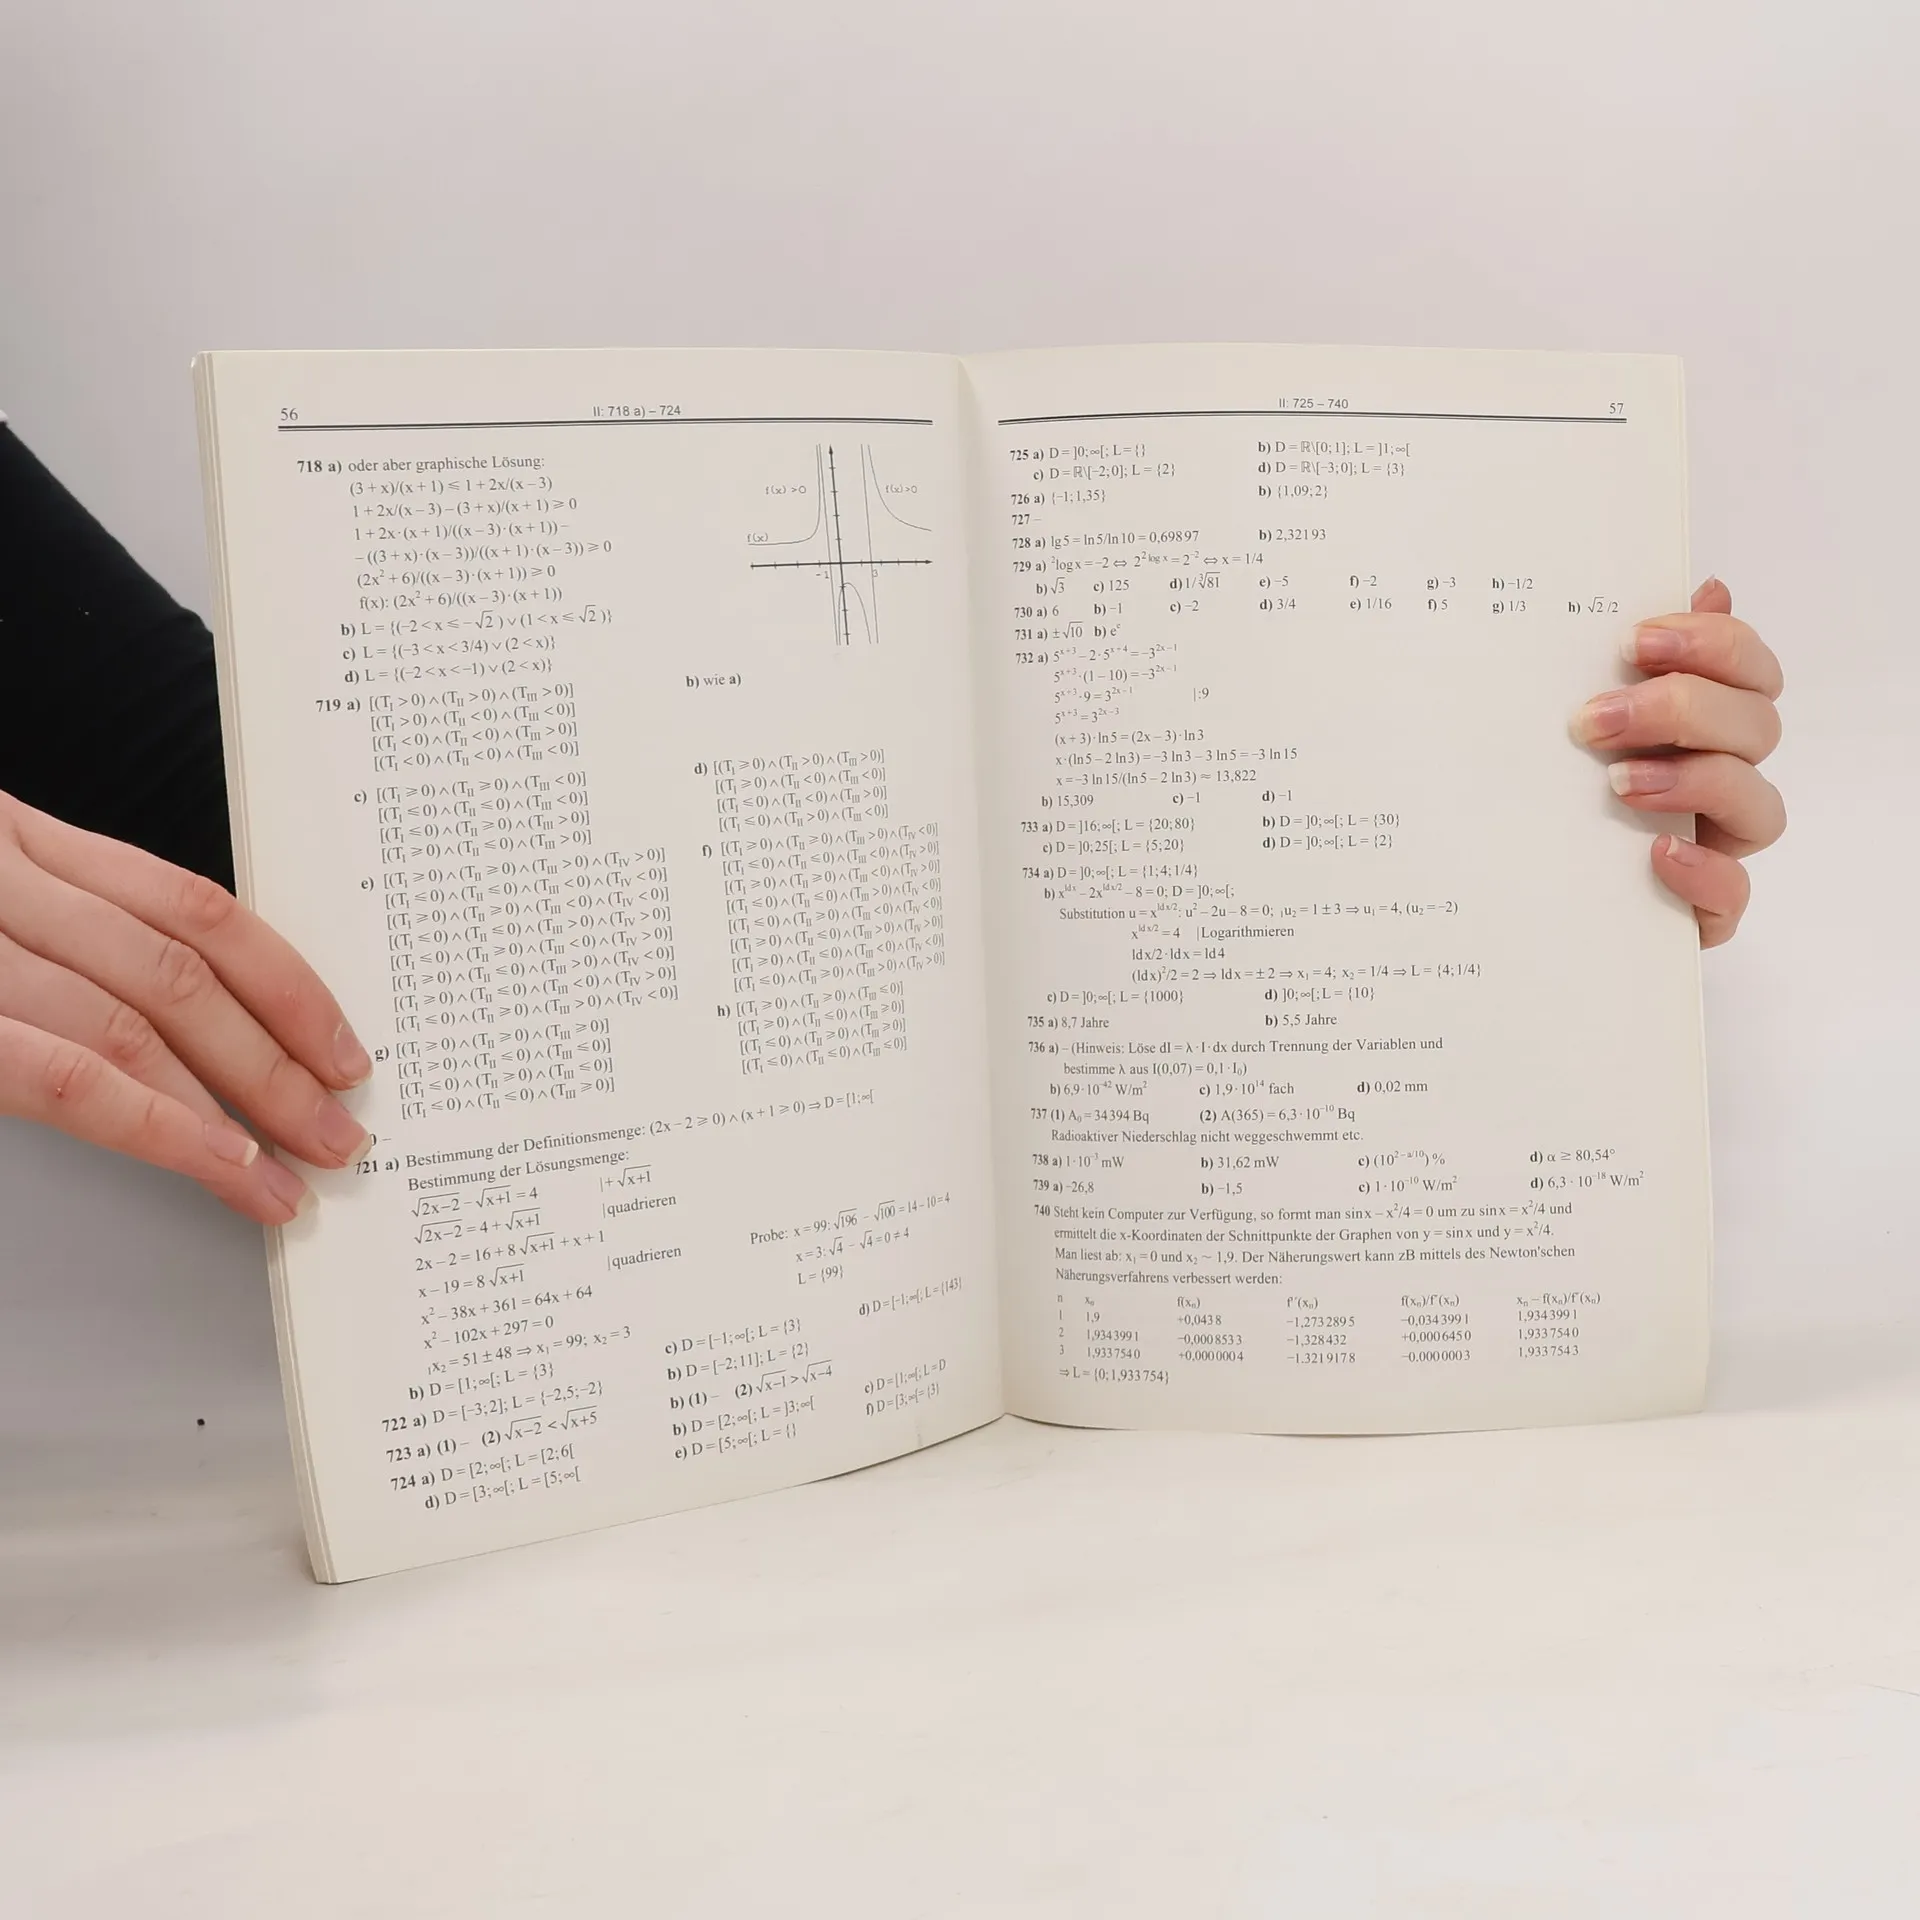 56
II: 718 a) – 724
718 a) oder aber graphische Lösung:
(3 + x)/(x + 1) ≤ 1 + 2x/(x – 3)
1 + 2x/(x – 3) – (3 + x)/(x + 1) ≥ 0
1 + 2x·(x + 1)/((x – 3)·(x + 1)) –
– ((3 + x)·(x – 3))/((x + 1)·(x – 3)) ≥ 0
(2x² + 6)/((x – 3)·(x + 1)) ≥ 0
f(x): (2x² + 6)/((x – 3)·(x + 1))
f(x) >0
f(x)>0
f(x)
-1
3
b) L = {(–2 < x ≤ –√2) ∨ (1 < x ≤ √2)}
c) L = {(–3 < x < 3/4) ∨ (2 < x)}
d) L = {(–2 < x < –1) ∨ (2 < x)}
719 a) [(T_I > 0) ∧ (T_II > 0) ∧ (T_III > 0)]
[(T_I > 0) ∧ (T_II < 0) ∧ (T_III < 0)]
[(T_I < 0) ∧ (T_II < 0) ∧ (T_III > 0)]
[(T_I < 0) ∧ (T_II > 0) ∧ (T_III < 0)]
b) wie a)
c) [(T_I ≥ 0) ∧ (T_II ≥ 0) ∧ (T_III < 0)]
[(T_I ≤ 0) ∧ (T_II ≤ 0) ∧ (T_III < 0)]
[(T_I ≤ 0) ∧ (T_II ≥ 0) ∧ (T_III > 0)]
[(T_I ≥ 0) ∧ (T_II ≤ 0) ∧ (T_III > 0)]
d) [(T_I ≥ 0) ∧ (T_II > 0) ∧ (T_III > 0)]
[(T_I ≥ 0) ∧ (T_II < 0) ∧ (T_III < 0)]
[(T_I ≤ 0) ∧ (T_II < 0) ∧ (T_III > 0)]
[(T_I ≤ 0) ∧ (T_II > 0) ∧ (T_III < 0)]
e) [(T_I ≥ 0) ∧ (T_II ≥ 0) ∧ (T_III > 0) ∧ (T_IV > 0)]
[(T_I ≤ 0) ∧ (T_II ≤ 0) ∧ (T_III < 0) ∧ (T_IV < 0)]
[(T_I ≥ 0) ∧ (T_II ≥ 0) ∧ (T_III < 0) ∧ (T_IV < 0)]
[(T_I ≤ 0) ∧ (T_II ≤ 0) ∧ (T_III > 0) ∧ (T_IV > 0)]
[(T_I ≤ 0) ∧ (T_II ≥ 0) ∧ (T_III < 0) ∧ (T_IV > 0)]
[(T_I ≥ 0) ∧ (T_II ≤ 0) ∧ (T_III > 0) ∧ (T_IV < 0)]
[(T_I ≥ 0) ∧ (T_II ≤ 0) ∧ (T_III < 0) ∧ (T_IV > 0)]
[(T_I ≤ 0) ∧ (T_II ≥ 0) ∧ (T_III > 0) ∧ (T_IV < 0)]
f) [(T_I ≥ 0) ∧ (T_II ≥ 0) ∧ (T_III > 0) ∧ (T_IV < 0)]
[(T_I ≤ 0) ∧ (T_II ≤ 0) ∧ (T_III < 0) ∧ (T_IV > 0)]
[(T_I ≥ 0) ∧ (T_II ≥ 0) ∧ (T_III < 0) ∧ (T_IV > 0)]
[(T_I ≤ 0) ∧ (T_II ≤ 0) ∧ (T_III > 0) ∧ (T_IV < 0)]
[(T_I ≤ 0) ∧ (T_II ≥ 0) ∧ (T_III < 0) ∧ (T_IV < 0)]
[(T_I ≥ 0) ∧ (T_II ≤ 0) ∧ (T_III > 0) ∧ (T_IV > 0)]
[(T_I ≥ 0) ∧ (T_II ≤ 0) ∧ (T_III < 0) ∧ (T_IV < 0)]
[(T_I ≤ 0) ∧ (T_II ≥ 0) ∧ (T_III > 0) ∧ (T_IV > 0)]
g) [(T_I ≥ 0) ∧ (T_II ≥ 0) ∧ (T_III ≥ 0)]
[(T_I ≥ 0) ∧ (T_II ≤ 0) ∧ (T_III ≤ 0)]
[(T_I ≤ 0) ∧ (T_II ≥ 0) ∧ (T_III ≤ 0)]
[(T_I ≤ 0) ∧ (T_II ≤ 0) ∧ (T_III ≥ 0)]
h) [(T_I ≥ 0) ∧ (T_II ≥ 0) ∧ (T_III ≤ 0)]
[(T_I ≥ 0) ∧ (T_II ≤ 0) ∧ (T_III ≥ 0)]
[(T_I ≤ 0) ∧ (T_II ≥ 0) ∧ (T_III ≥ 0)]
[(T_I ≤ 0) ∧ (T_II ≤ 0) ∧ (T_III ≤ 0)]
0 –
721 a) Bestimmung der Definitionsmenge: (2x – 2 ≥ 0) ∧ (x + 1 ≥ 0) ⇒ D = [1; ∞[
Bestimmung der Lösungsmenge:
√2x–2 – √x+1 = 4 |+ √x+1
√2x–2 = 4 + √x+1 |quadrieren
2x – 2 = 16 + 8 √x+1 + x + 1
x – 19 = 8 √x+1 |quadrieren
x² – 38x + 361 = 64x + 64
x² – 102x + 297 = 0
₁x₂ = 51 ± 48 ⇒ x₁ = 99; x₂ = 3
Probe: x = 99: √196 – √100 = 14 – 10 = 4
x = 3: √4 – √4 = 0 ≠ 4
L = {99}
b) D = [1; ∞[; L = {3} c) D = [–1; ∞[; L = {3} d) D = [–1; ∞[; L = {143}
722 a) D = [–3; 2]; L = {–2,5; –2} b) D = [–2; 11]; L = {2}
723 a) (1) – (2) √x–2 < √x+5 b) (1) – (2) √x–1 > √x–4
724 a) D = [2; ∞[; L = [2; 6[ b) D = [2; ∞[; L = ]3; ∞[ c) D = [1; ∞[; L = D
d) D = [3; ∞[; L = [5; ∞[ e) D = [5; ∞[; L = {} f) D = [3; ∞[= {3}
II: 725 – 740
57
725 a) D = ]0; ∞[; L = {} b) D = ℝ\[0; 1]; L = ]1; ∞[
c) D = ℝ\[–2; 0]; L = {2} d) D = ℝ\[–3; 0]; L = {3}
726 a) {–1; 1,35} b) {1,09; 2}
727 –
728 a) lg 5 = ln 5/ln 10 = 0,69897 b) 2,32193
729 a) ²log x = –2 ⇔ 2^(²log x) = 2⁻² ⇔ x = 1/4
b) √3 c) 125 d) 1/∛81 e) –5 f) –2 g) –3 h) –1/2
730 a) 6 b) –1 c) –2 d) 3/4 e) 1/16 f) 5 g) 1/3 h) √2 /2
731 a) ±√10 b) e^e
732 a) 5^(x+3) – 2·5^(x+4) = –3^(2x–1)
5^(x+3)·(1 – 10) = –3^(2x–1)
5^(x+3)·9 = 3^(2x–1) |:9
5^(x+3) = 3^(2x–3)
(x + 3)·ln 5 = (2x – 3)·ln 3
x·(ln 5 – 2 ln 3) = –3 ln 3 – 3 ln 5 = –3 ln 15
x = –3 ln 15/(ln 5 – 2 ln 3) ≈ 13,822
b) 15,309 c) –1 d) –1
733 a) D = ]16; ∞[; L = {20; 80} b) D = ]0; ∞[; L = {30}
c) D = ]0; 25[; L = {5; 20} d) D = ]0; ∞[; L = {2}
734 a) D = ]0; ∞[; L = {1; 4; 1/4}
b) x^(ld x) – 2x^(ld x/2) – 8 = 0; D = ]0; ∞[;
Substitution u = x^(ld x/2): u² – 2u – 8 = 0; ₁u₂ = 1 ± 3 ⇒ u₁ = 4, (u₂ = –2)
x^(ld x/2) = 4 |Logarithmieren
ld x/2 · ld x = ld 4
(ld x)²/2 = 2 ⇒ ld x = ±2 ⇒ x₁ = 4; x₂ = 1/4 ⇒ L = {4; 1/4}
c) D = ]0; ∞[; L = {1000} d) ]0; ∞[; L = {10}
735 a) 8,7 Jahre b) 5,5 Jahre
736 a) – (Hinweis: Löse dI = λ · I · dx durch Trennung der Variablen und
bestimme λ aus I(0,07) = 0,1 · I₀)
b) 6,9·10⁻⁴² W/m² c) 1,9·10¹⁴ fach d) 0,02 mm
737 (1) A₀ = 34394 Bq (2) A(365) = 6,3·10⁻¹⁰ Bq
Radioaktiver Niederschlag nicht weggeschwemmt etc.
738 a) 1·10⁻³ mW b) 31,62 mW c) (10^(2–a/10)) % d) α ≥ 80,54°
739 a) –26,8 b) –1,5 c) 1·10⁻¹⁰ W/m² d) 6,3 · 10⁻¹⁸ W/m²
740 Steht kein Computer zur Verfügung, so formt man sin x – x²/4 = 0 um zu sin x = x²/4 und
ermittelt die x-Koordinaten der Schnittpunkte der Graphen von y = sin x und y = x²/4.
Man liest ab: x₁ = 0 und x₂ ~ 1,9. Der Näherungswert kann zB mittels des Newton'schen
Näherungsverfahrens verbessert werden:
n xₙ f(xₙ) f'(xₙ) f(xₙ)/f'(xₙ) xₙ – f(xₙ)/f'(xₙ)
1 1,9 +0,0438 –1,2732895 –0,0343991 1,9343991
2 1,9343991 –0,0008533 –1,328432 +0,0006450 1,9337540
3 1,9337540 +0,0000004 –1.3219178 –0.0000003 1,9337543
⇒ L = {0; 1,933754}